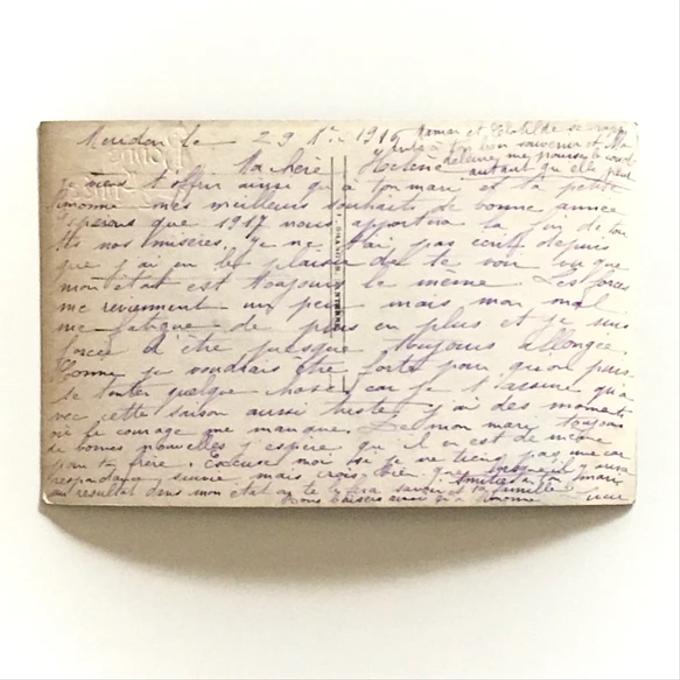 le 29 1916
Maman et Clotilde se rappel
à ton bon souvenir et Ma
autant qu'elle peut
Ma chère Hélène
je viens t'offrir ainsi qu'à ton mari et ta petite
Simonne mes meilleurs souhaits de bonne année
Espérons que 1917 nous apportera la fin de tou
tes nos misères. Je ne t'ai pas écrit depuis
que j'ai eu le plaisir de te voir vu que
mon état est toujours le même. Les forces
me reviennent un peu mais mon mal
me fatigue de plus en plus et je suis
forcée d'être presque toujours allongée.
je voudrais être forte pour qu'on puis
se tenter quelque chose, car je t'assure qu'a
vec cette saison aussi triste, j'ai des moments
où le courage me manque. De mon mari toujours
de bonnes nouvelles j'espère qu'il en est de même
pour ton frère. Excuse moi si je ne tiens pas une cor
respondance suivie mais crois bien que lorsqu'il y aura
un résultat dans mon état je te ferai savoir
Amitiés à ton mari
et ta famille
Bons baisers ainsi qu'à Simonne
Lucie